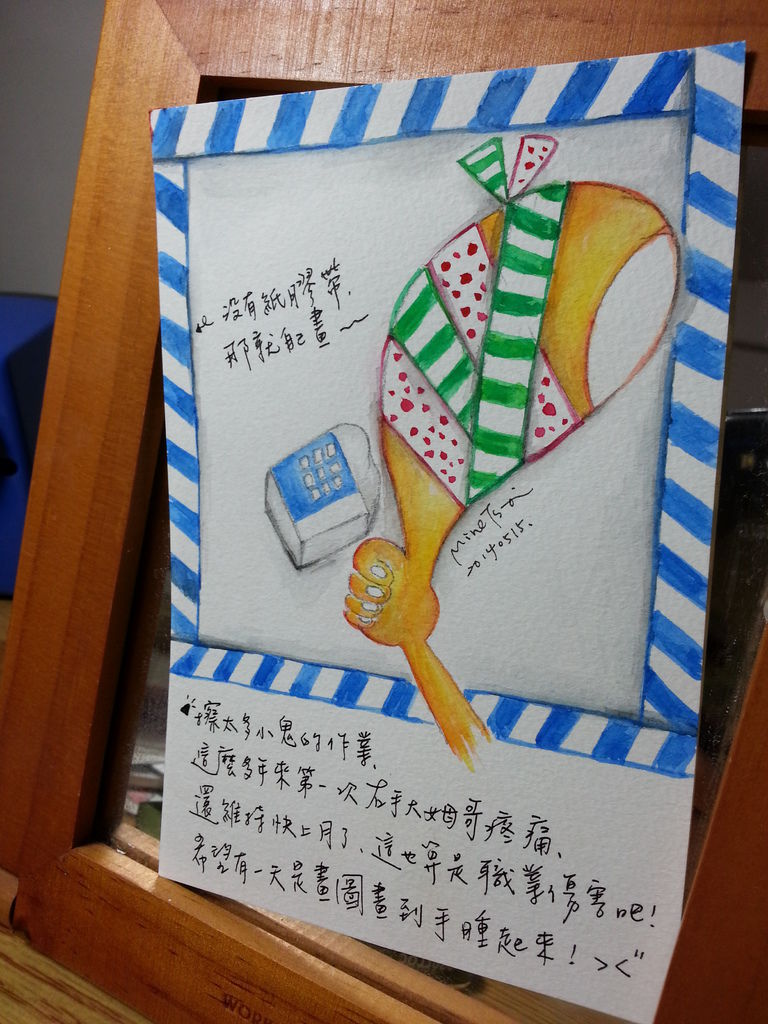 沒有紙膠帶、
那就自己畫～
Mine Tsai
20140515.
擦太多小鬼的作業、
這麼多年來第一次右手大姆哥疼痛、
還維持快上月了、這也算是職業傷害吧！
希望有一天是畫圖畫到手腫起來！><"
WOR